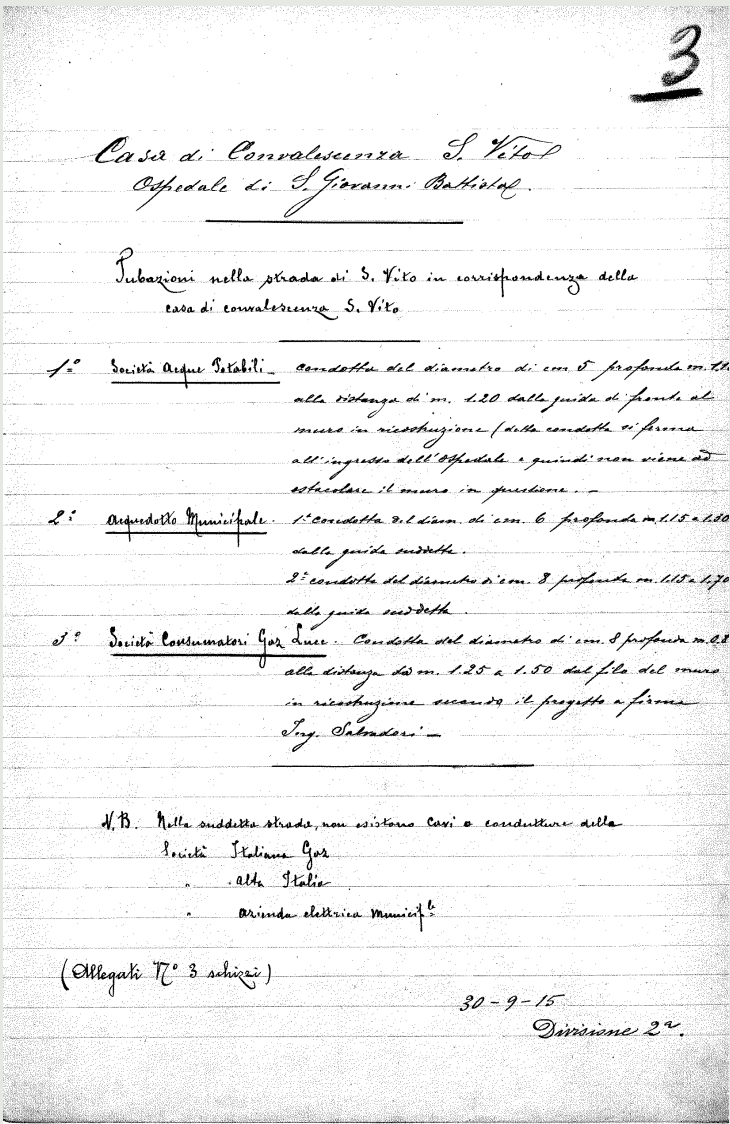 3
Casa di Convalescenza S. Vito
Ospedale di S. Giovanni Battista.
Tubazioni nella strada di S. Vito in corrispondenza della
casa di convalescenza S. Vito
1º Società Acque Potabili - condotta del diametro di cm 5 profonda m. 1.1
alla distanza di m. 1.20 dalla guida di fronte al
muro in ricostruzione (detta condotta si ferma
all'ingresso dell'Ospedale e quindi non viene ad
ostacolare il muro in questione. -
2º Acquedotto Municipale. 1ª condotta del diam. di cm. 6 profonda m. 1.15 a 1.30
dalla guida suddetta.
2ª condotta del diametro di cm. 8 profonda m. 1.15 a 1.70
dalla guida suddetta.
3º Società Consumatori Gaz Luce. Condotta del diametro di cm. 8 profonda m. 0.8
alla distanza da m. 1.25 a 1.50 dal filo del muro
in ricostruzione secondo il progetto a firma
Ing. Salvadori -
N.B. Nella suddetta strada, non esistono cavi o condutture della
Società Italiana Gaz
" Alta Italia
" Azienda elettrica Municip.le
(Allegati Nº 3 schizzi)
30-9-15
Divisione 2ª.